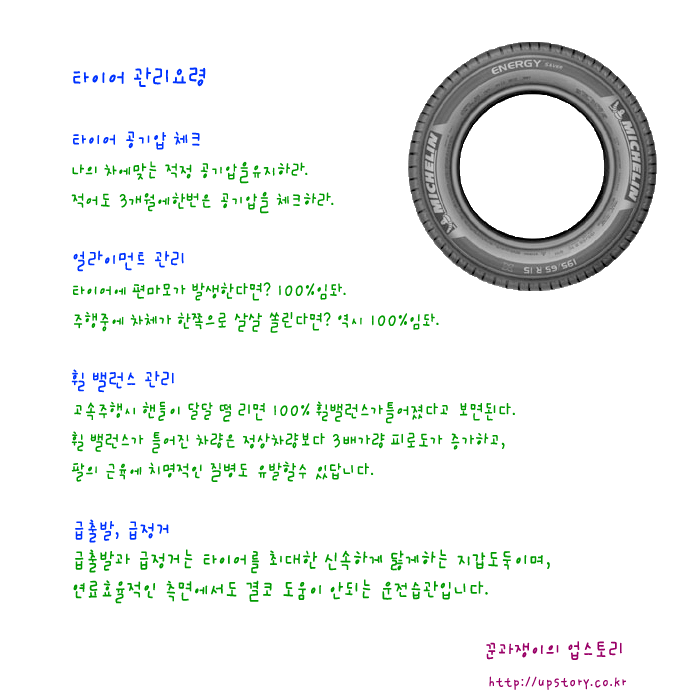 타이어 관리요령
ENERGY SAVER
MICHELIN
MICHELIN
195/65 R 15
타이어 공기압 체크
나의 차에맞는 적정 공기압을유지하라.
적어도 3개월에한번은 공기압을 체크하라.
얼라이먼트 관리
타이어에 편마모가 발생한다면? 100%임돠.
주행중에 차체가 한쪽으로 살살 쏠린다면? 역시 100%임돠.
휠 밸런스 관리
고속주행시 핸들이 달달 떨 리면 100% 휠밸런스가틀어졌다고 보면된다.
휠 밸런스가 틀어진 차량은 정상차량보다 3배가량 피로도가 증가하고,
팔의 근육에 치명적인 질병도 유발할수 있답니다.
급출발, 급정거
급출발과 급정거는 타이어를 최대한 신속하게 닳게하는 지갑도둑이며,
연료효율적인 측면에서도 결코 도움이 안되는 운전습관입니다.
꾼과쟁이의 업스토리
http://upstory.co.kr